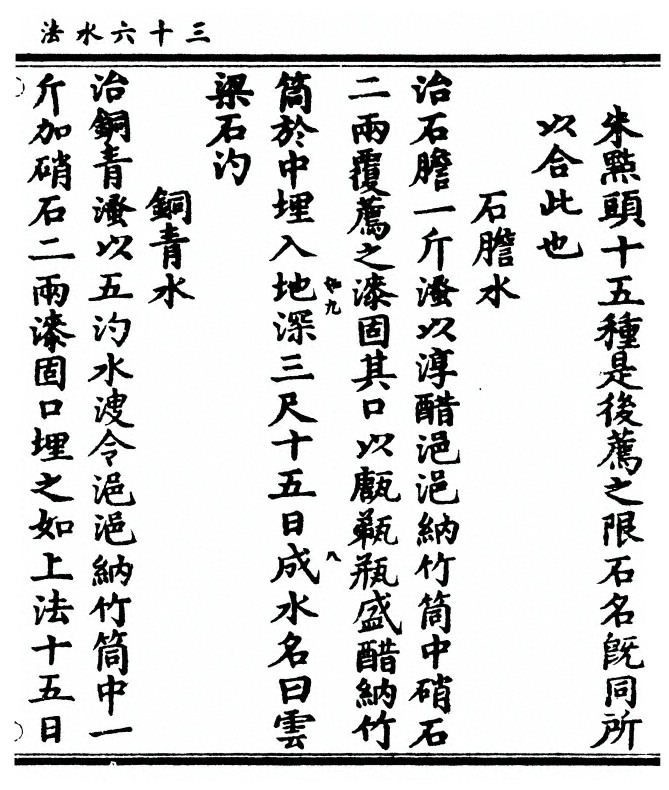 三十六水法
朱點頭十五種是後薦之限石名旣同所
以合此也
石膽水
治石膽一斤溞以淳醋浥浥納竹筒中硝石
二兩覆薦之漆固其口以瓶盛醋納竹
九
八
筒於中埋入地深三尺十五日成水名曰雲
梁石汋
銅青水
治銅青溞以五汋水溲令浥浥納竹筒中一
斤加硝石二兩漆固口埋之如上法十五日